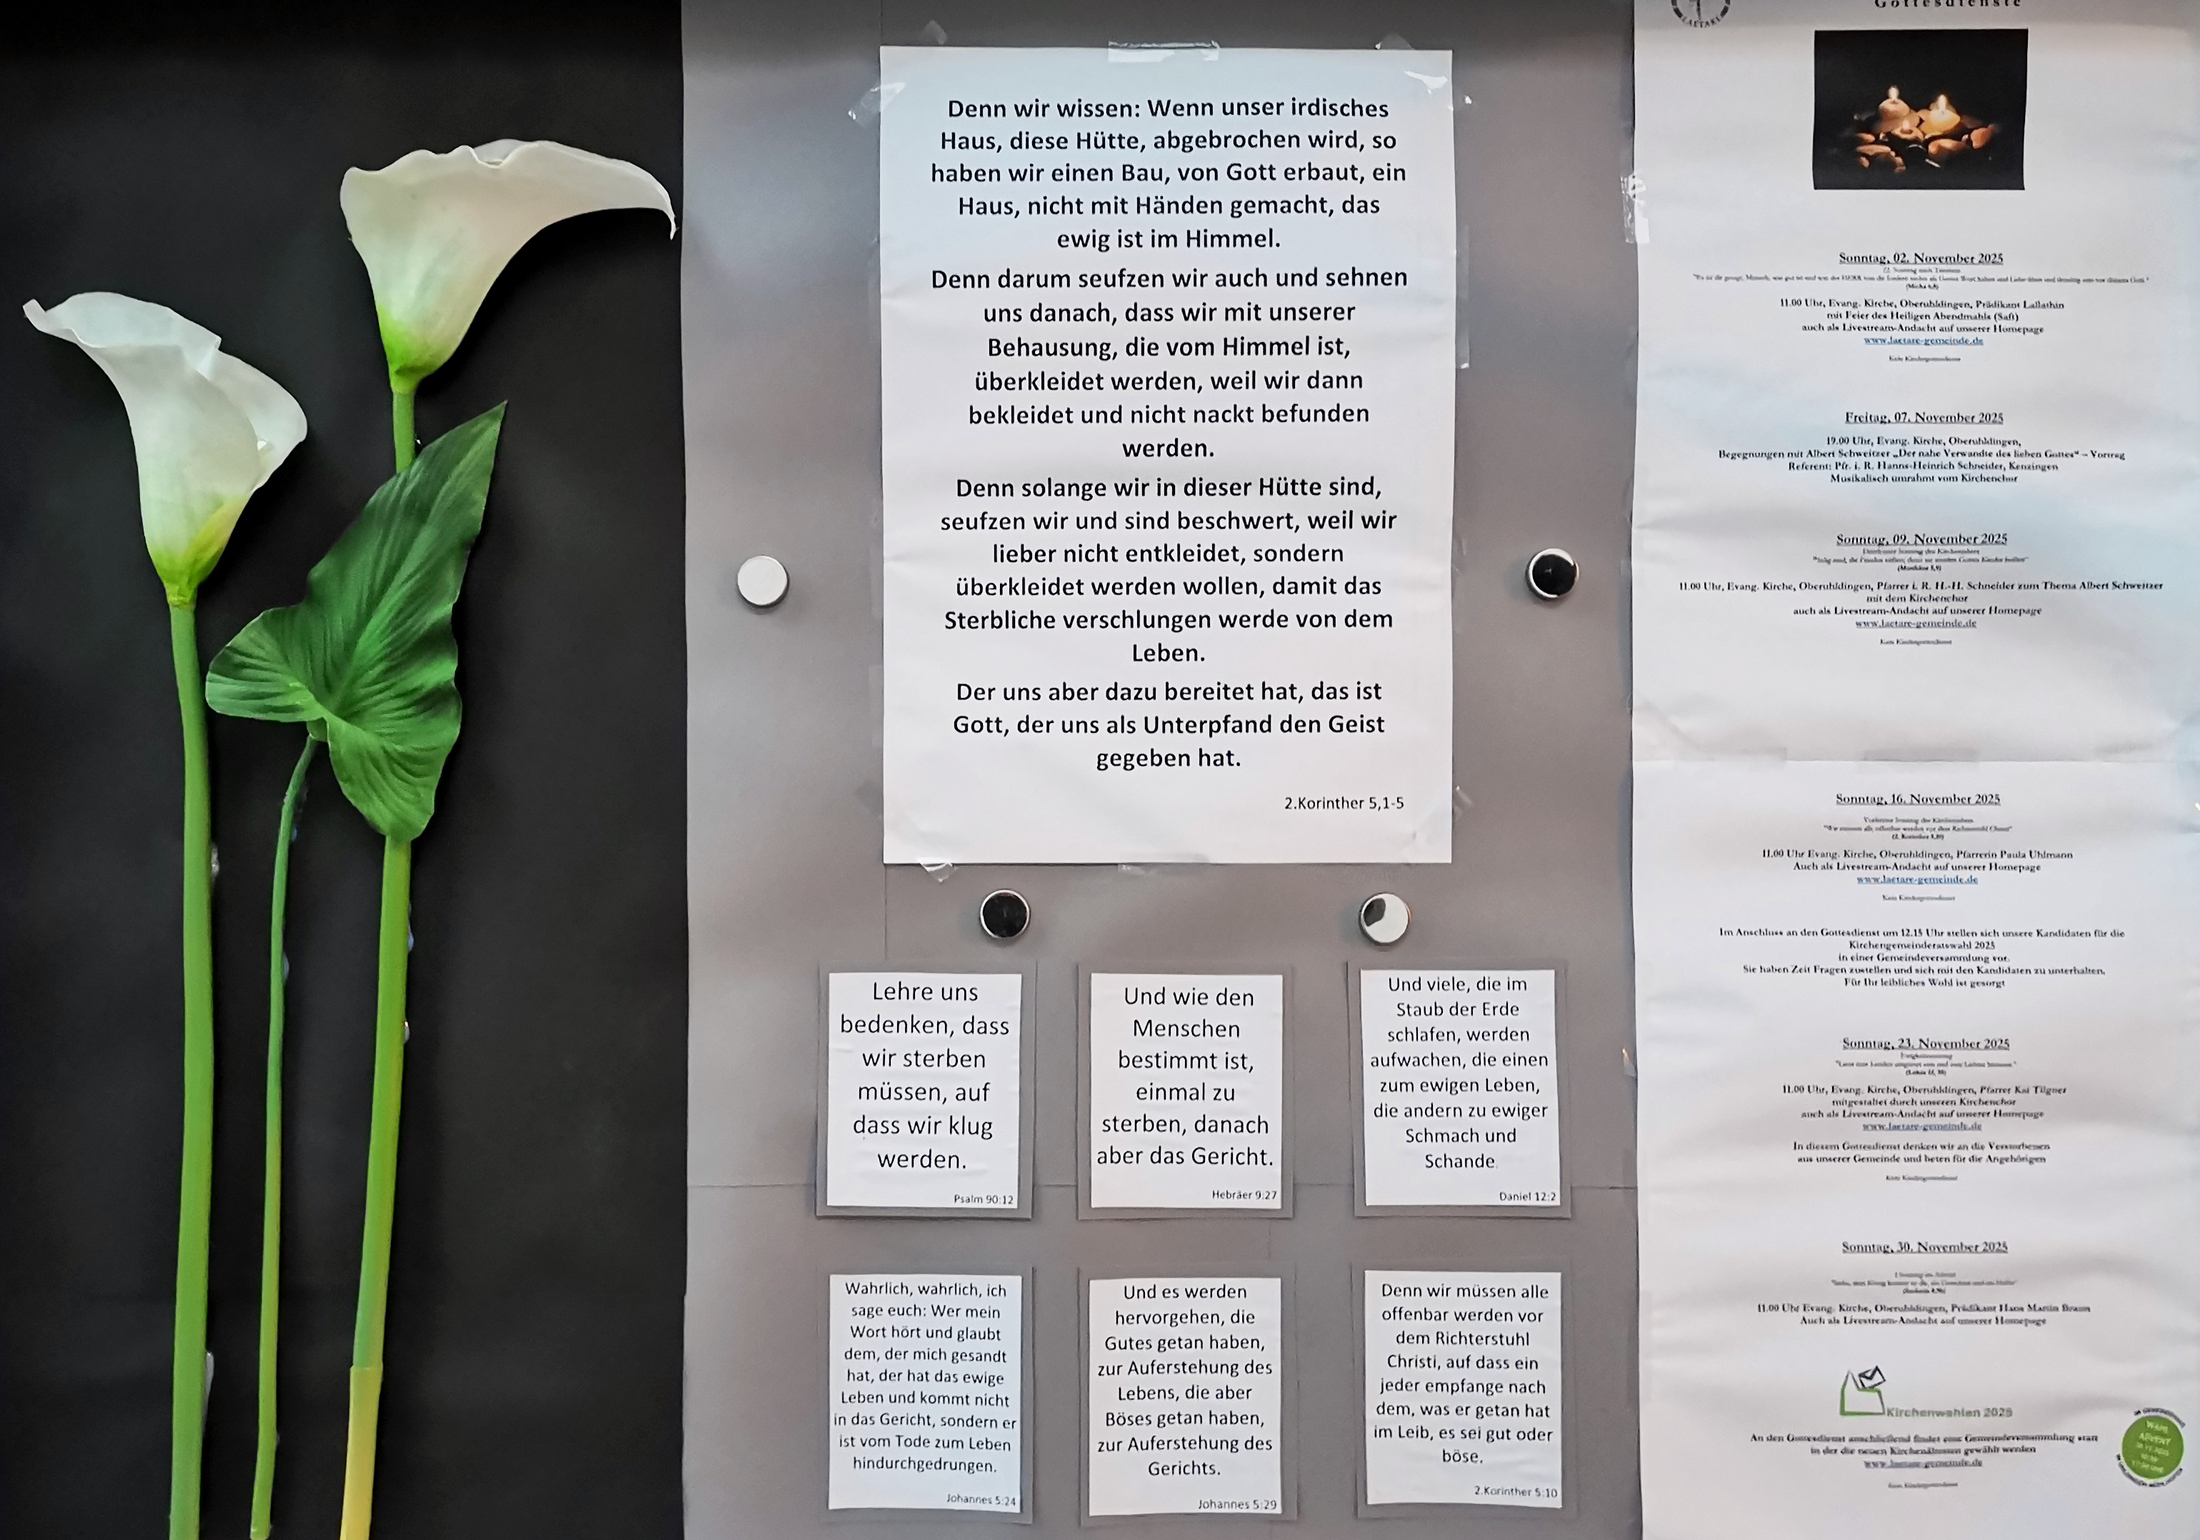 Denn wir wissen: Wenn unser irdisches
Haus, diese Hütte, abgebrochen wird, so
haben wir einen Bau, von Gott erbaut, ein
Haus, nicht mit Händen gemacht, das
ewig ist im Himmel.
Denn darum seufzen wir auch und sehnen
uns danach, dass wir mit unserer
Behausung, die vom Himmel ist,
überkleidet werden, weil wir dann
bekleidet und nicht nackt befunden
werden.
Denn solange wir in dieser Hütte sind,
seufzen wir und sind beschwert, weil wir
lieber nicht entkleidet, sondern
überkleidet werden wollen, damit das
Sterbliche verschlungen werde von dem
Leben.
Der uns aber dazu bereitet hat, das ist
Gott, der uns als Unterpfand den Geist
gegeben hat.
2.Korinther 5,1-5
Lehre uns
bedenken, dass
wir sterben
müssen, auf
dass wir klug
werden.
Psalm 90:12
Und wie den
Menschen
bestimmt ist,
einmal zu
sterben, danach
aber das Gericht.
Hebräer 9:27
Und viele, die im
Staub der Erde
schlafen, werden
aufwachen, die einen
zum ewigen Leben,
die andern zu ewiger
Schmach und
Schande
Daniel 12:2
Wahrlich, wahrlich, ich
sage euch: Wer mein
Wort hört und glaubt
dem, der mich gesandt
hat, der hat das ewige
Leben und kommt nicht
in das Gericht, sondern er
ist vom Tode zum Leben
hindurchgedrungen.
Johannes 5:24
Und es werden
hervorgehen, die
Gutes getan haben,
zur Auferstehung des
Lebens, die aber
Böses getan haben,
zur Auferstehung des
Gerichts.
Johannes 5:29
Denn wir müssen alle
offenbar werden vor
dem Richterstuhl
Christi, auf dass ein
jeder empfange nach
dem, was er getan hat
im Leib, es sei gut oder
böse.
2.Korinther 5:10
LAETARE
Gottesdienste
Sonntag, 02. November 2025
11.00 Uhr, Evang. Kirche, Oberuhldingen, Prädikant Lallathin
mit Feier des Heiligen Abendmahls (Saft)
auch als Livestream-Andacht auf unserer Homepage
www.laetare-gemeinde.de
Kein Kindergottesdienst
Freitag, 07. November 2025
19.00 Uhr, Evang. Kirche, Oberuhldingen,
Begegnungen mit Albert Schweitzer „Der nahe Verwandte des lieben Gottes“ – Vortrag
Referent: Pfr. i. R. Hanns-Heinrich Schneider, Kenzingen
Musikalisch umrahmt vom Kirchenchor
Sonntag, 09. November 2025
(Matthäus 5,9)
11.00 Uhr, Evang. Kirche, Oberuhldingen, Pfarrer i. R. H.-H. Schneider zum Thema Albert Schweitzer
mit dem Kirchenchor
auch als Livestream-Andacht auf unserer Homepage
www.laetare-gemeinde.de
Kein Kindergottesdienst
Sonntag, 16. November 2025
11.00 Uhr Evang. Kirche, Oberuhldingen, Pfarrerin Paula Uhlmann
Auch als Livestream-Andacht auf unserer Homepage
www.laetare-gemeinde.de
Kein Kindergottesdienst
Im Anschluss an den Gottesdienst um 12.15 Uhr stellen sich unsere Kandidaten für die
Kirchengemeinderatswahl 2025
in einer Gemeindeversammlung vor.
Sie haben Zeit Fragen zustellen und sich mit den Kandidaten zu unterhalten.
Für Ihr leibliches Wohl ist gesorgt
Sonntag, 23. November 2025
11.00 Uhr, Evang. Kirche, Oberuhldingen, Pfarrer Kai Tilgner
mitgestaltet durch unseren Kirchenchor
auch als Livestream-Andacht auf unserer Homepage
www.laetare-gemeinde.de
In diesem Gottesdienst denken wir an die Verstorbenen
aus unserer Gemeinde und beten für die Angehörigen
Kein Kindergottesdienst
Sonntag, 30. November 2025
11.00 Uhr Evang. Kirche, Oberuhldingen, Prädikant Hans Martin Braun
Auch als Livestream-Andacht auf unserer Homepage
Kirchenwahlen 2025
An den Gottesdienst anschließend findet eine Gemeindeversammlung statt
in der die neuen Kirchenältesten gewählt werden
www.laetare-gemeinde.de
Kein Kindergottesdienst